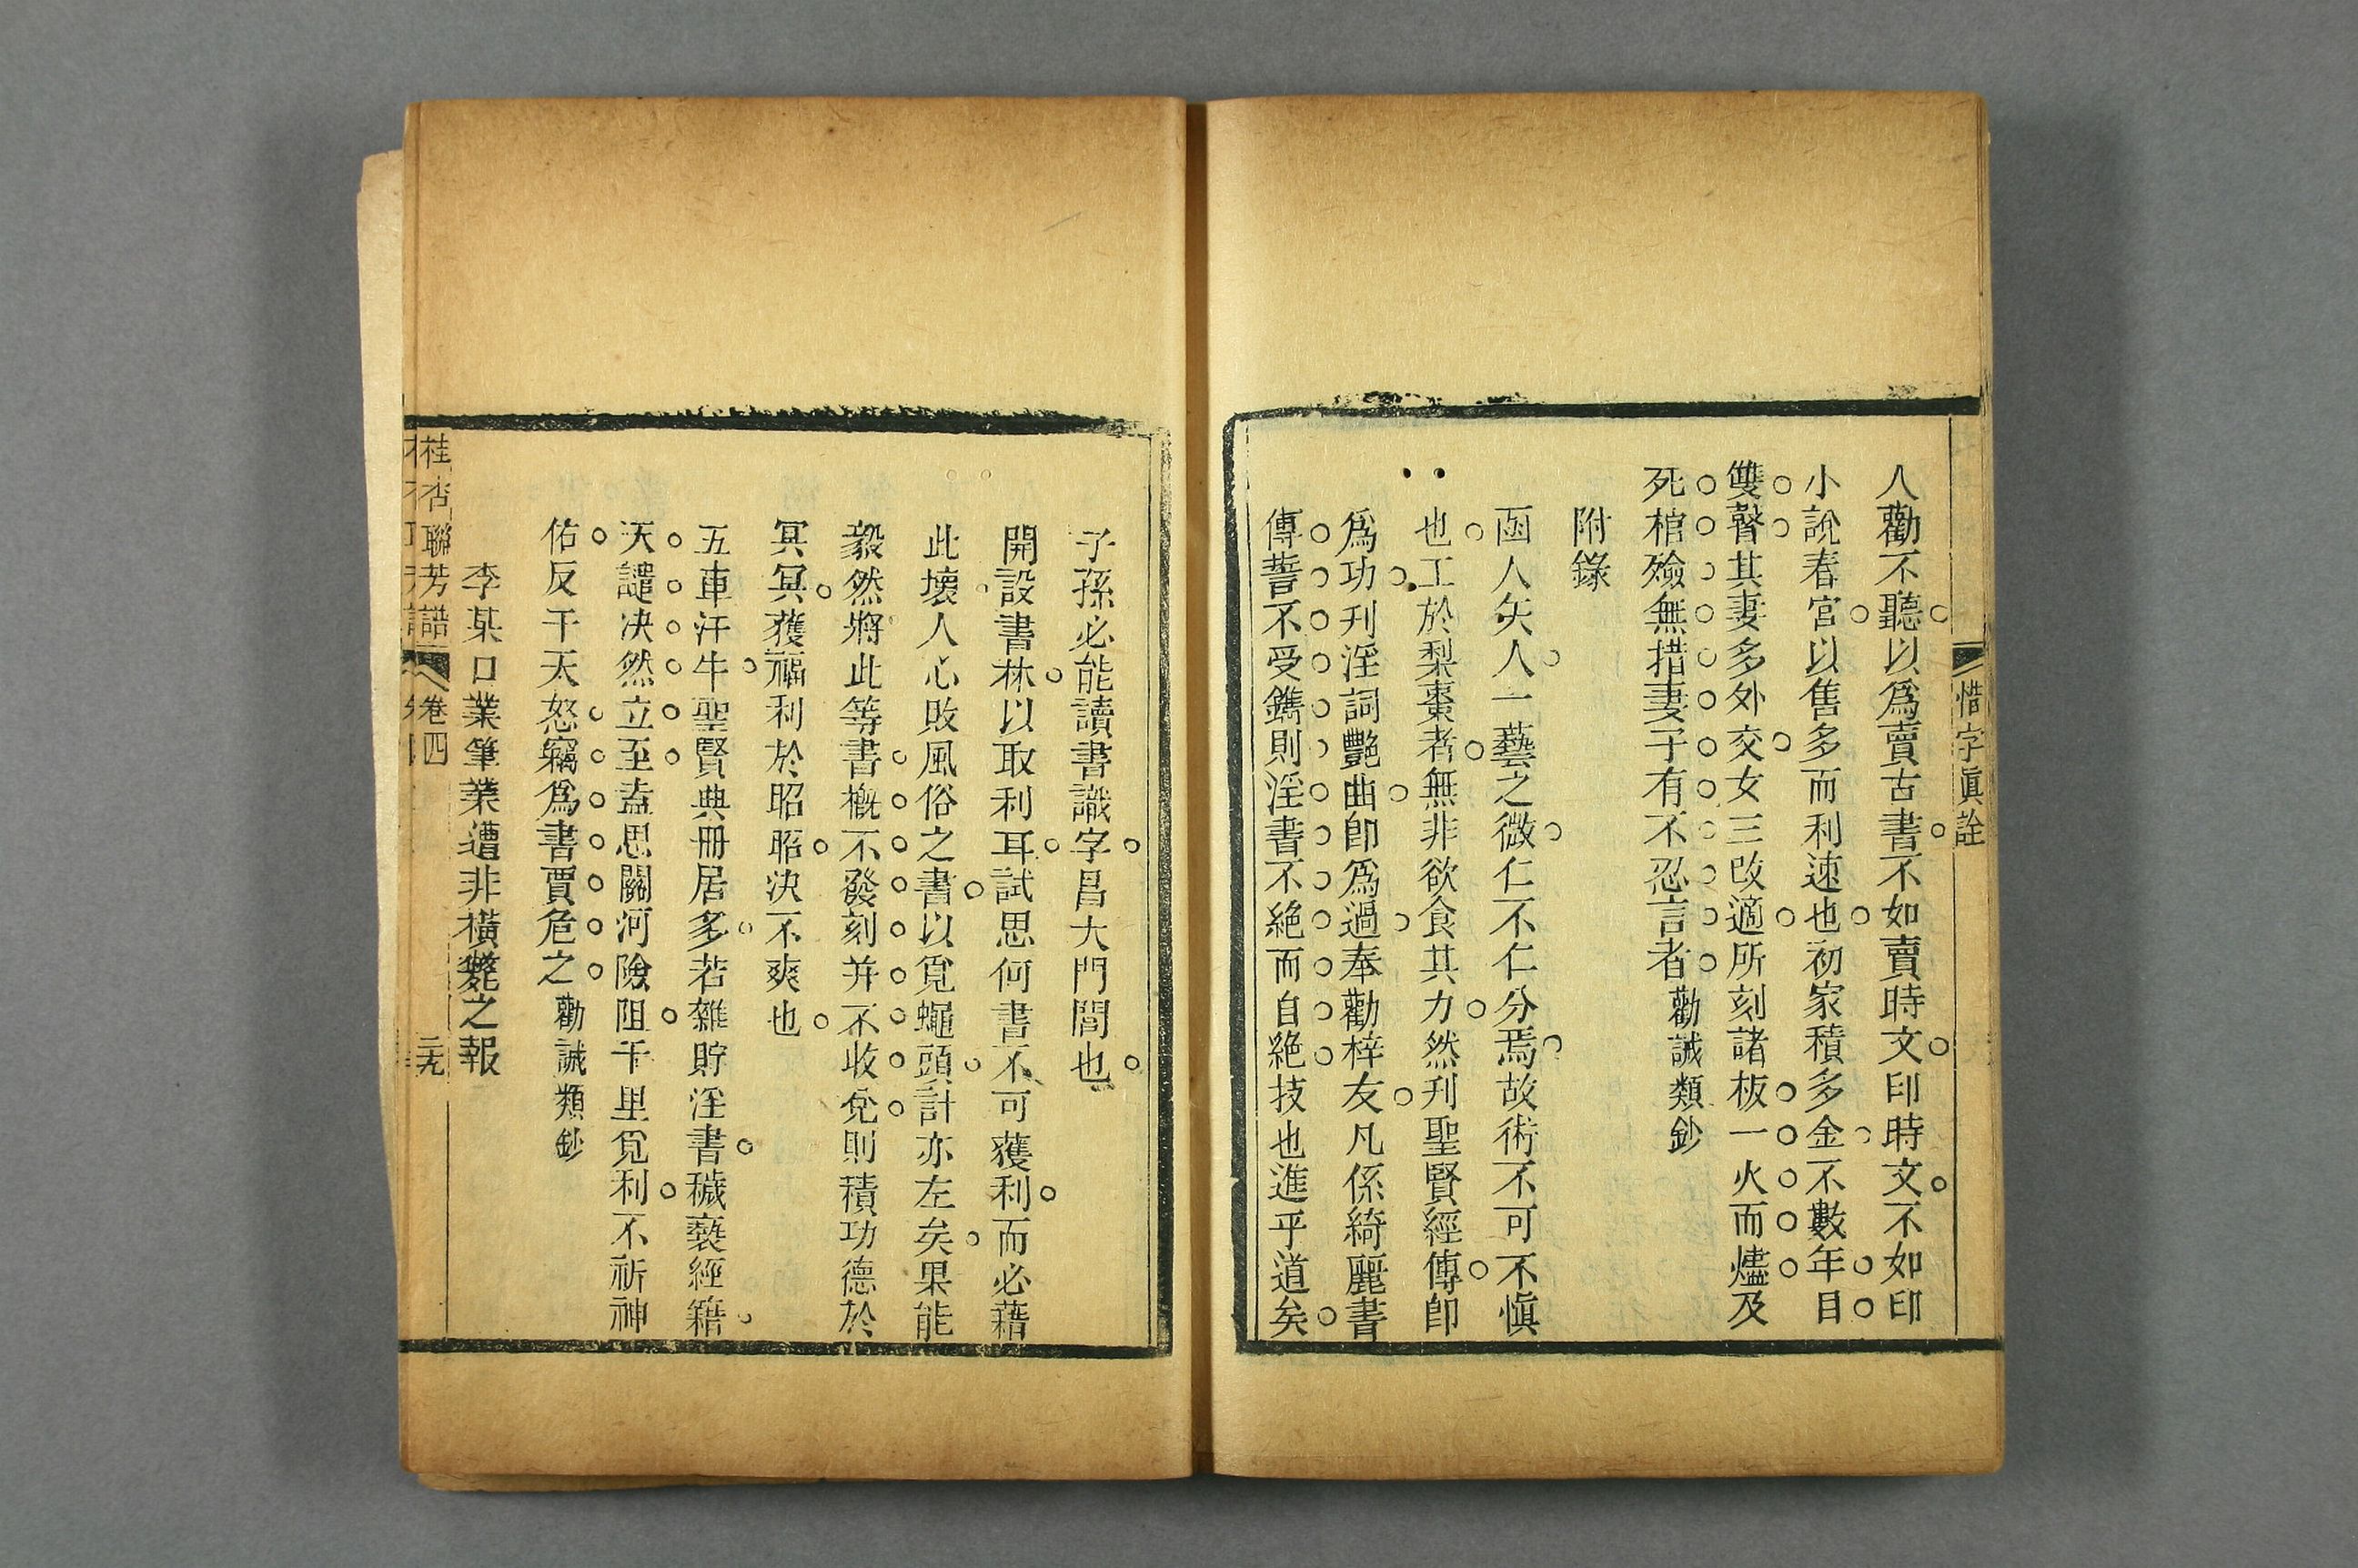 惜字眞詮
人勸不聽以爲賣古書不如賣時文印時文不如印
小說春宮以售多而利速也初家積多金不數年目
雙瞽其妻多外交女三改適所刻諸板一火而燼及
死棺殮無措妻子有不忍言者勸誡類鈔
附錄
函人矢人一藝之微仁不仁分焉故術不可不愼
也工於梨棗者無非欲食其力然刊聖賢經傳卽
爲功刋淫詞艷曲卽爲過奉勸梓友凡係綺麗書
傳誓不受鐫則淫書不絕而自絕技也進乎道矣
子孫必能讀書識字昌大門閭也
開設書林以取利耳試思何書不可獲利而必藉
此壞人心敗風俗之書以覓蠅頭計亦左矣果能
毅然將此等書槪不發刻并不收兌則積功德於
冥冥獲福利於昭昭決不爽也
五車汗牛聖賢典冊居多若雜貯淫書穢褻經籍
天譴決然立至盍思關河險阻千里覓利不祈神
佑反干天怒竊爲書賈危之勸誡類鈔
李某口業筆業遭非橫斃之報
桂杏聯芳譜
卷四
二九